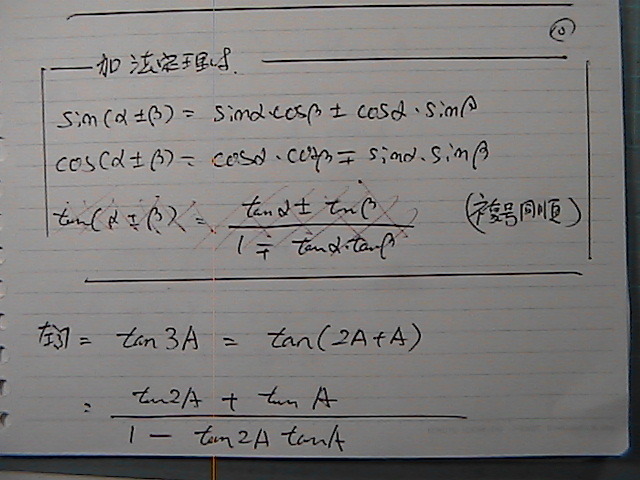 ⑩
加法定理より.
sin(α±β) = sinα·cosβ ± cosα·sinβ
cos(α±β) = cosα·cosβ ∓ sinα·sinβ
tan(α±β) = (tanα ± tanβ)/(1 ∓ tanα·tanβ) (複号同順)
左辺 = tan3A = tan(2A+A)
= (tan2A + tanA)/(1 - tan2A tanA)